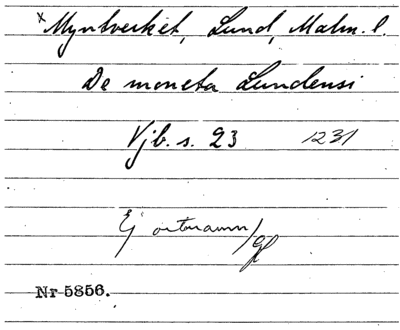 x Myntverket, Lund, Malm. l.
De moneta Lundensi
Vjb. s. 23 1231
Ej ortnamn/
Nr 5856.